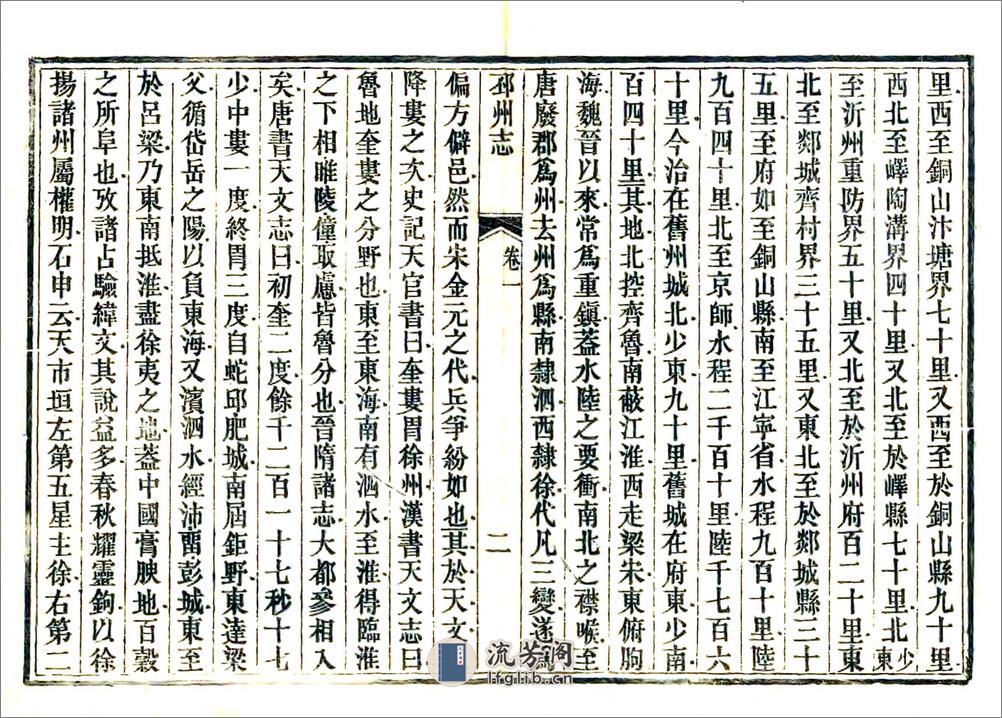 里西至銅山汴塘界七十里又西至於銅山縣九十里
西北至嶧陶溝界四十里又北至於嶧縣七十里北少東
至沂州重防界五十里又北至於沂州府百二十里東
北至郯城齊村界三十五里又東北至於郯城縣三十
五里至府如至銅山縣南至江寧省水程九百十里陸
九百四十里北至京師水程二千百十里陸千七百六
十里今治在舊州城北少東九十里舊城在府東少南
百四十里其地北控齊魯南蔽江淮西走梁宋東俯朐
海魏晉以來常爲重鎮葢水陸之要衝南北之襟喉至
唐廢郡爲州去州爲縣南隸泗西隸徐代凡三變遂
邳州志
卷一
二
偏方僻邑然而宋金元之代兵爭紛如也其於天文
降婁之次史記天官書曰奎婁胃徐州漢書天文志曰
魯地奎婁之分野也東至東海南有泗水至淮得臨淮
之下相睢陵僮取慮皆魯分也晉隋諸志大都參相入
矣唐書天文志曰初奎二度餘千二百一十七秒十七
少中婁一度終胃三度自蛇邱肥城南屆鉅野東達梁
父循岱岳之陽以負東海又濱泗水經沛畱彭城東至
於呂梁乃東南抵淮盡徐夷之地葢中國膏腴地百穀
之所阜也攷諸占驗緯文其說益多春秋耀靈鉤以徐
揚諸州屬權明石申云天市垣左第五星主徐右第二
流芳閣
lfglib.cn